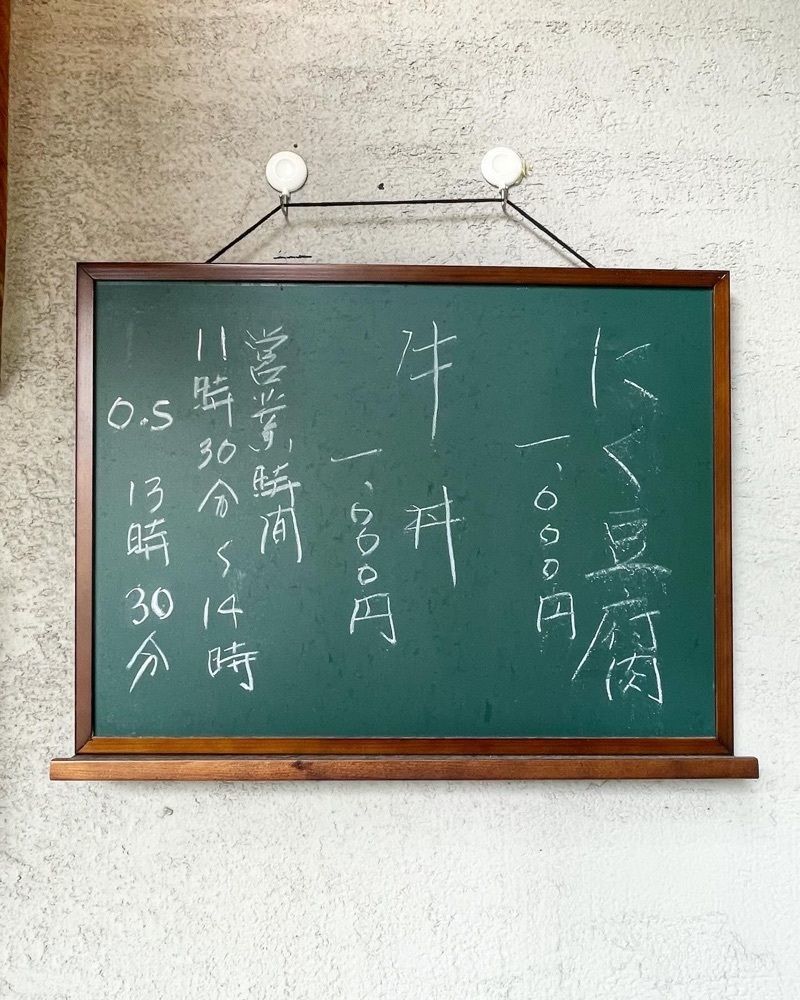 にく豆腐
一、000円
牛丼
一、000円
営業時間
11時30分～14時
O.S 13時30分